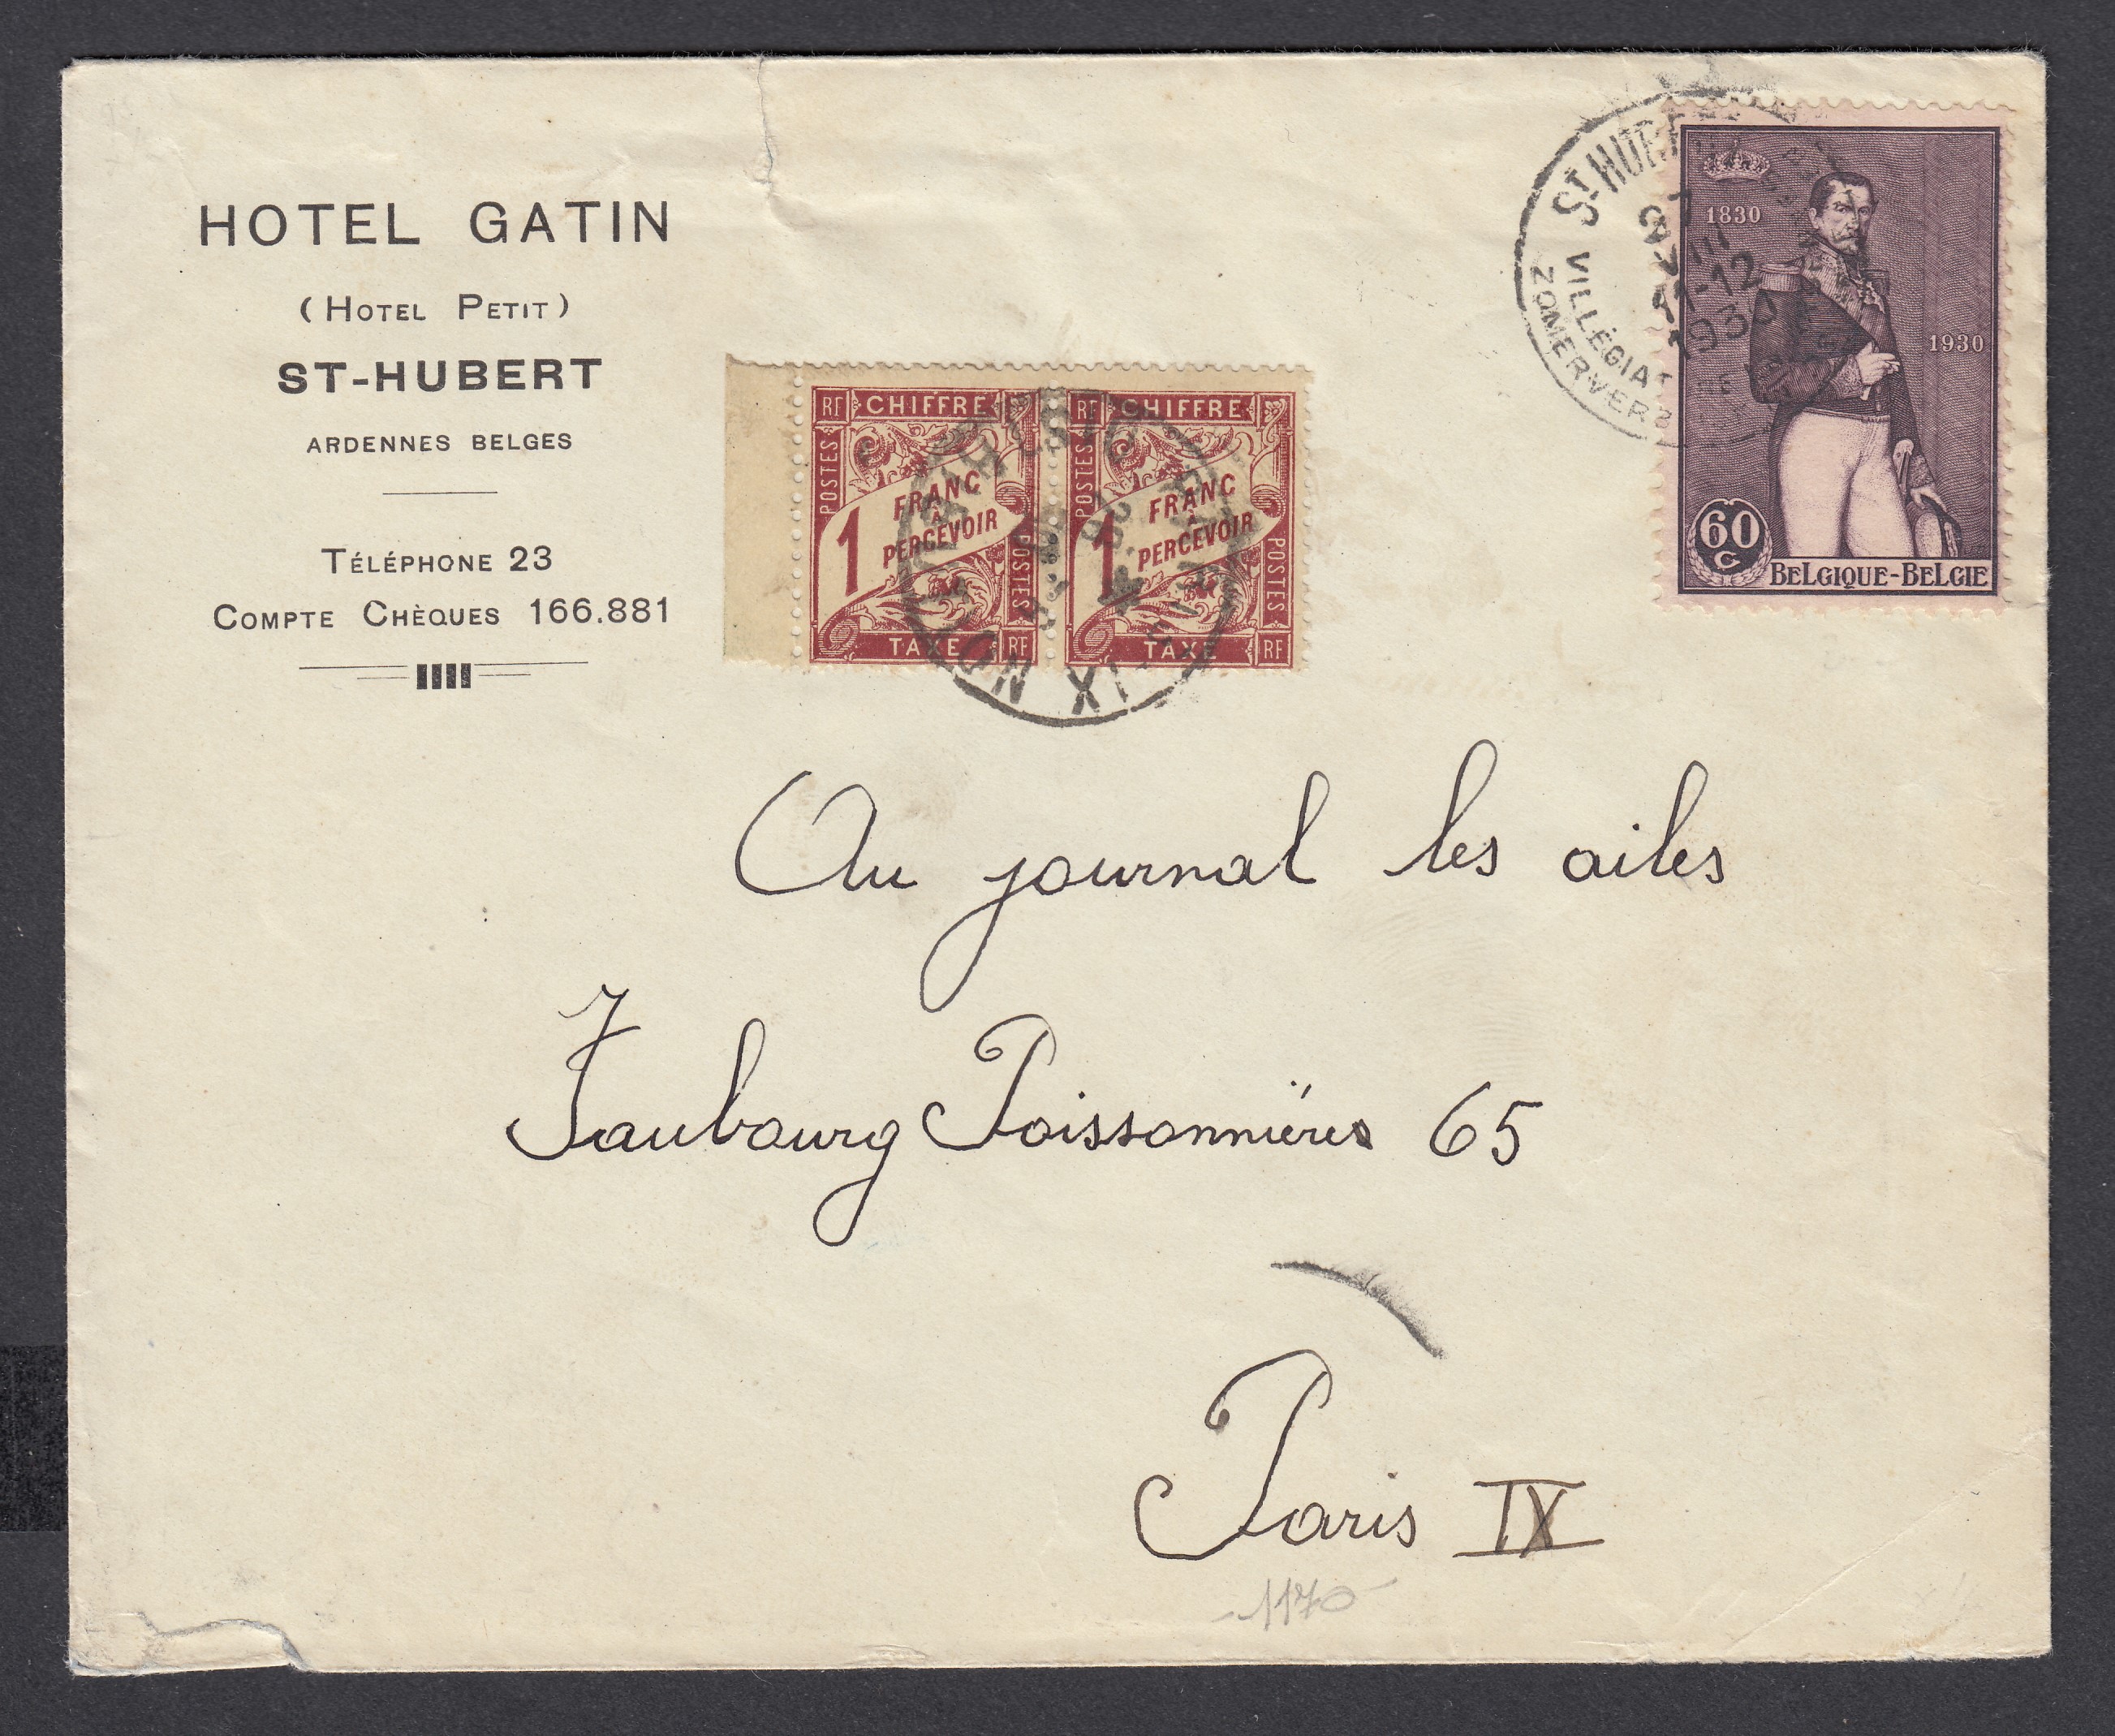 HOTEL GATIN
(HOTEL PETIT)
ST-HUBERT
ARDENNES BELGES
TÉLÉPHONE 23
COMPTE CHÈQUES 166.881
RF CHIFFRE
POSTES
1 FRANC
À
PERCEVOIR
POSTES
TAXE RF
RF CHIFFRE
POSTES
1 FRANC
À
PERCEVOIR
POSTES
TAXE RF
IX
ST-HUBERT
11-12
1930
ZOMERVER
1830
1930
60
C
BELGIQUE-BELGIE
Au journal les ailes
Faubourg Poissonnières 65
Paris IX
-1170-